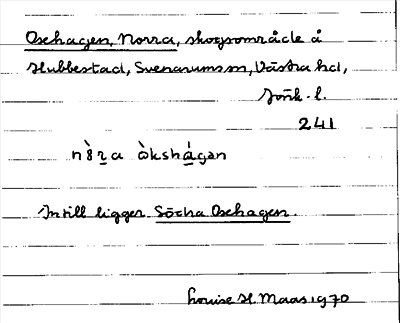 Oxhagen, Norra, skogsområde å
Stubbestad, Svenarums sn, Västra hd,
Jönk. l.
241
nòr̲a òkshá̲gən
Intill ligger Södra Oxhagen.
Louise H. Maas 1970